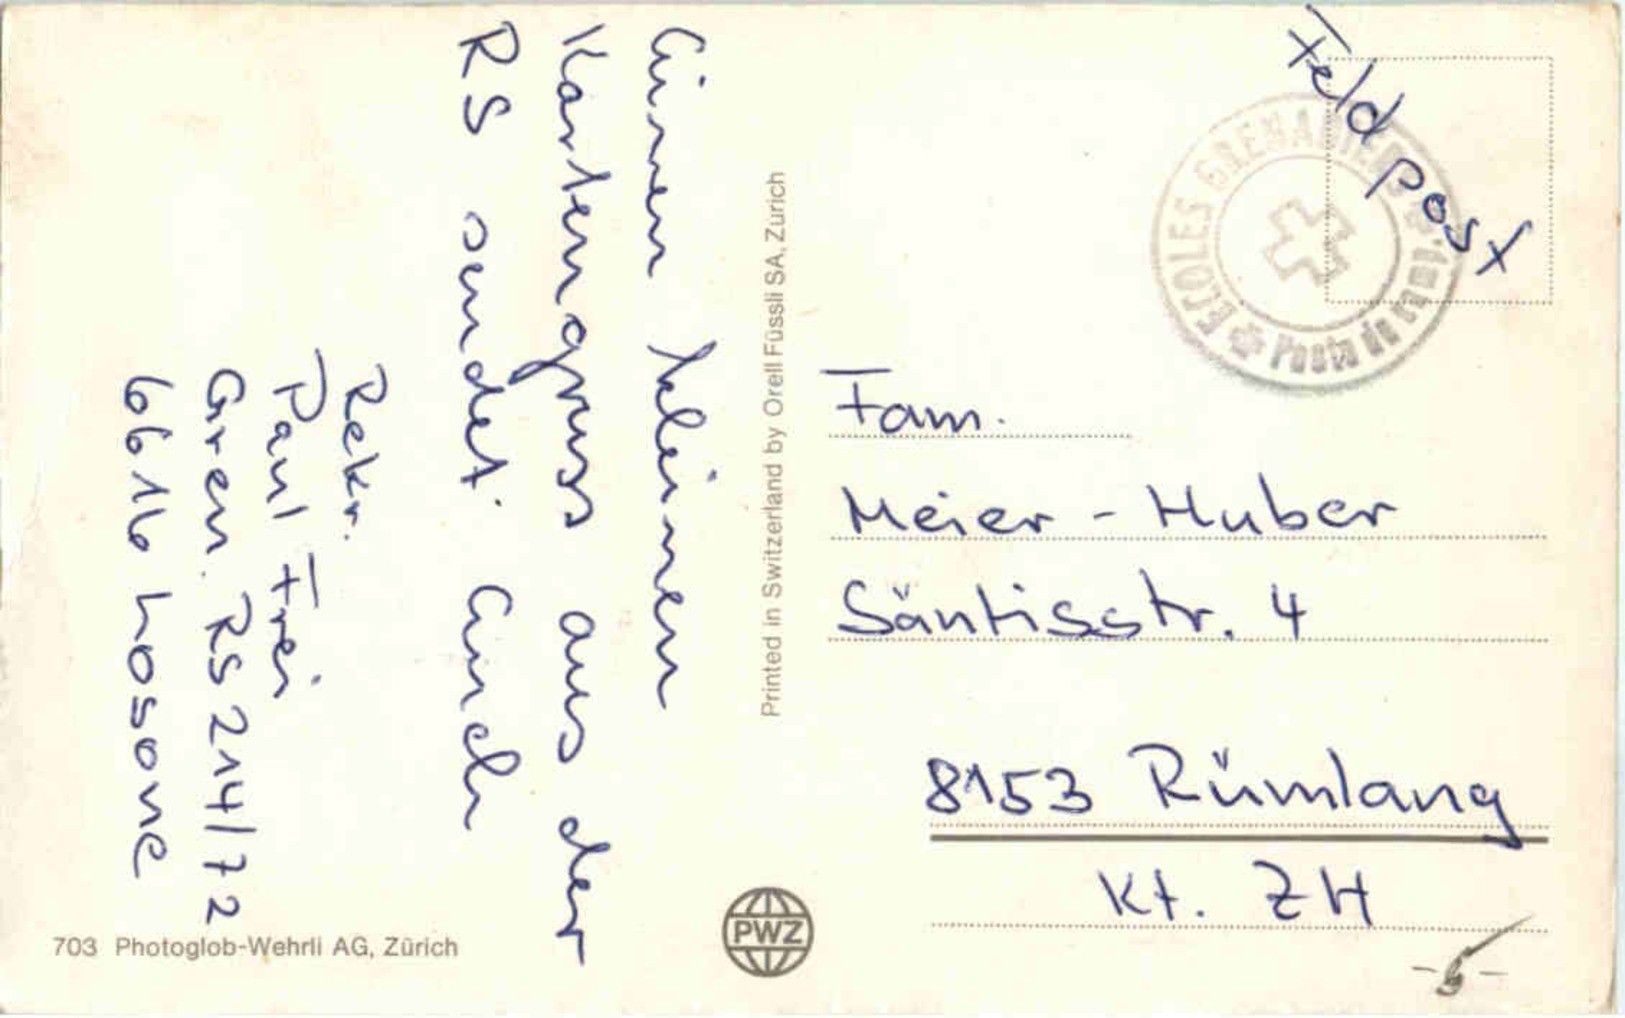 Einen kleinen
Kartengruss aus der
RS sendet Euch
Rekr.
Paul Frei
Gren. RS 214/72
6616 Losone
703 Photoglob-Wehrli AG, Zürich
Printed in Switzerland by Orell Füssli SA, Zürich
PWZ
Feldpost
ECOLES GRENADIERS
Poste de camp.
Fam.
Meier - Huber
Säntisstr. 4
8153 Rümlang
Kt. ZH